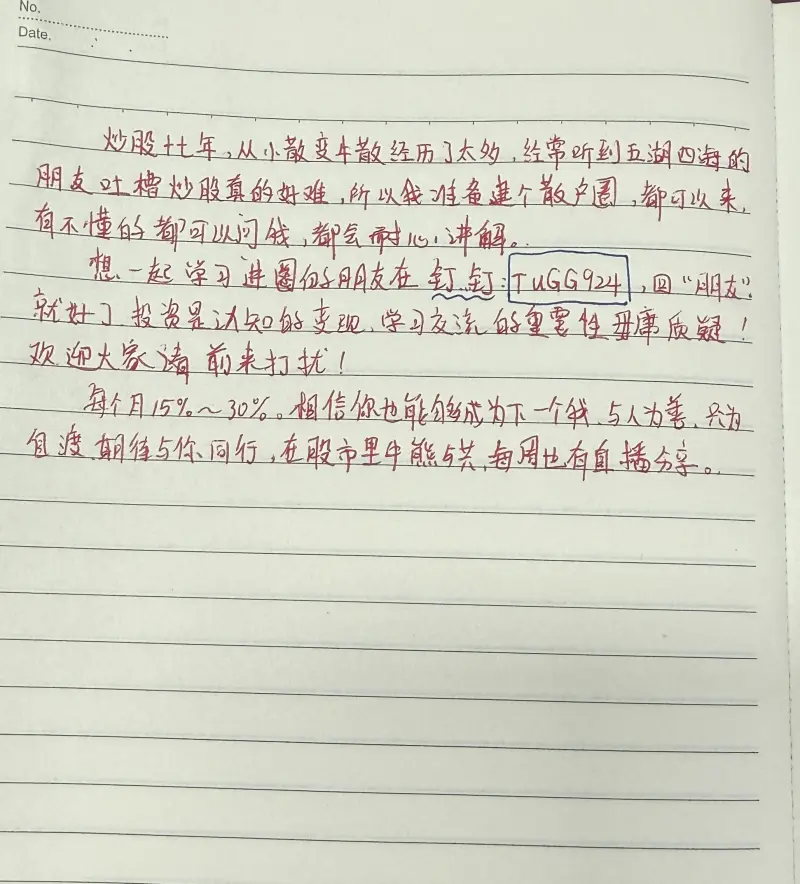 No.
Date.
炒股十七年,从小散变牛散经历了太多,经常听到五湖四海的
朋友吐槽炒股真的好难,所以我准备建个散户圈,都可以来,
有不懂的都可以问我,都会耐心讲解。
想一起学习进圈的好朋友在钉钉:TuGG924,回“朋友”
就好了投资是认知的变现,学习交流的重要性毋庸质疑!
欢迎大家请前来打扰!
每个月15%~30%。相信你也能够成为下一个我,与人为善,只为
自渡期待与你同行,在股市里牛熊与共,每周也有直播分享。